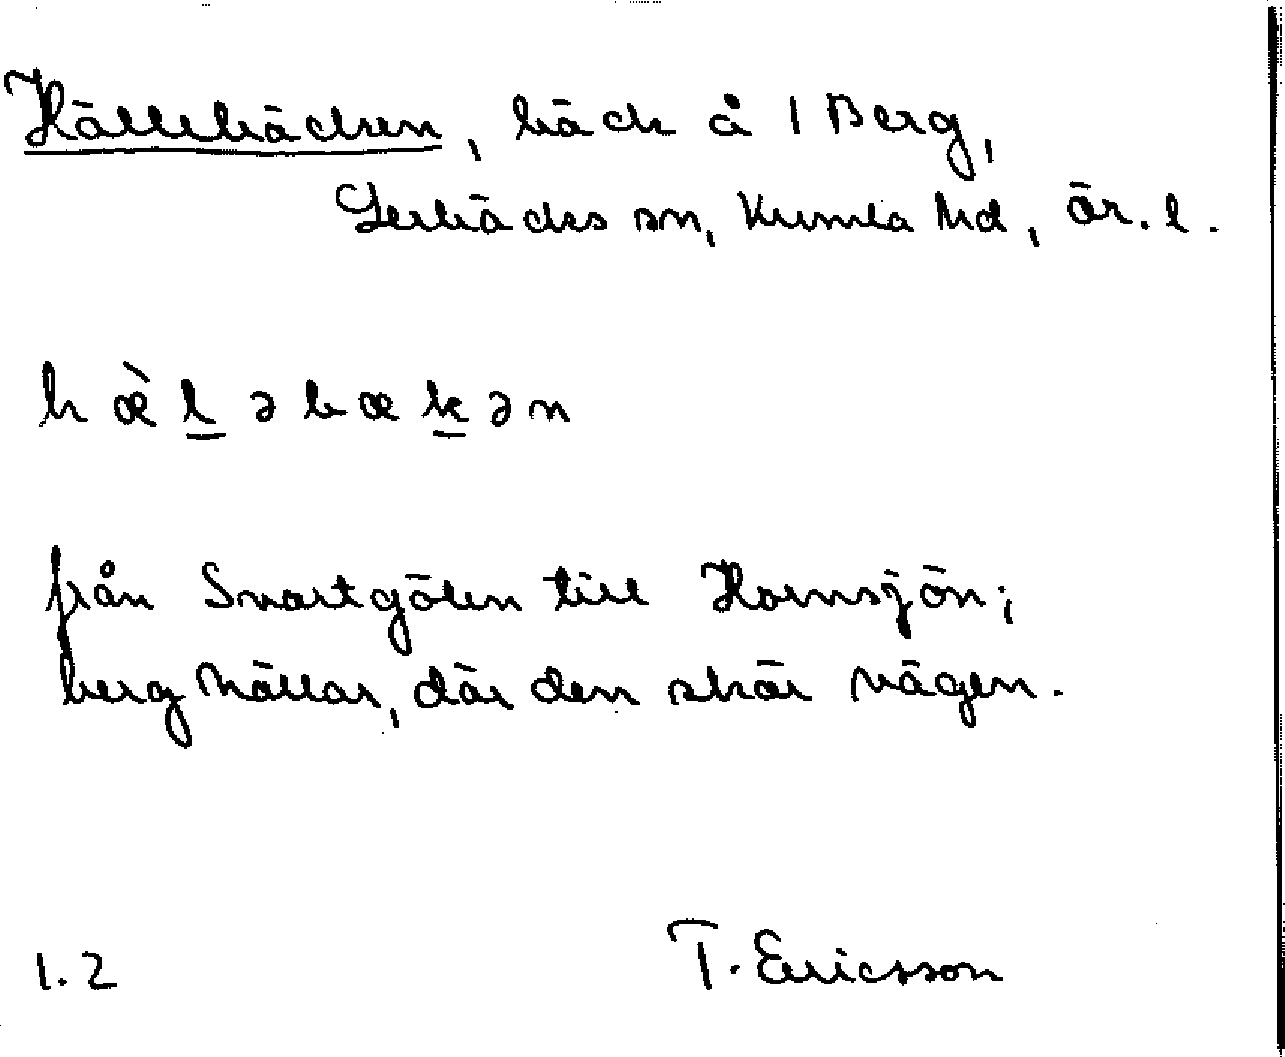 Hällebäcken, bäck å 1 Berg,
Lerbäcks sn, Kumla hd, är. l.
h æ̀ l̲ ə b æ k̲ ə n
från Svartgölen till Hornsjön;
berghällar, där den skär vägen.
1.2 T. Ericsson